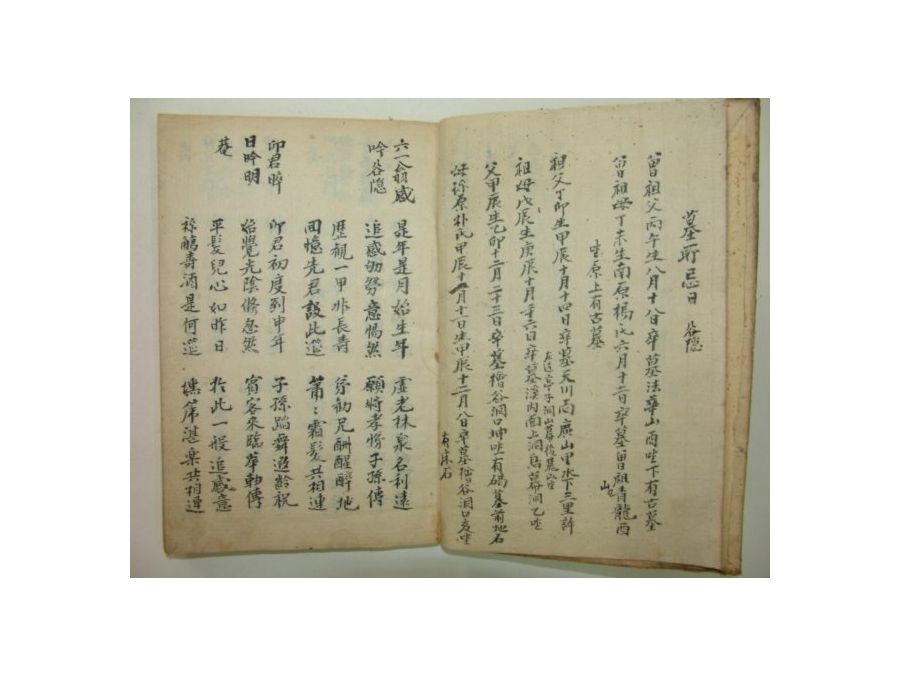 墓所忌日 谷隱
曾祖父丙午生八月十八日卒墓法華山酉坐下有古墓
曾祖母丁未生南原楊氏六月十二日卒墓曾祖靑龍酉
坐原上有古墓
祖父丁卯生甲辰十月十四日卒墓天川面廣山里水下三里許
祖母戊辰生庚辰十月二十六日卒墓溪內面上洞烏洞乙坐
父甲辰生乙卯十二月二十三日卒墓檜谷洞口坤坐有碣墓前地石
母原朴氏甲辰十月十一日生甲辰十二月八日卒墓檜谷洞口亥坐
有床石
六一翁感
吟谷隱
是年是月始生年 虛老林泉名利遠
追感劬勞意惕然 願將孝悌子孫傳
歷觀一甲非長壽 兄酬酲醉地
回憶先君設此筵 蕭蕭霜髮共相連
印君晬
日吟明
菴
印君初度到申年 子孫蹈舞遐齡祝
始覺光陰倏忽然 賓客來臨華軸傳
平髮兒心如昨日 於此一般追感意
觴壽酒是何筵 席湛樂共相連